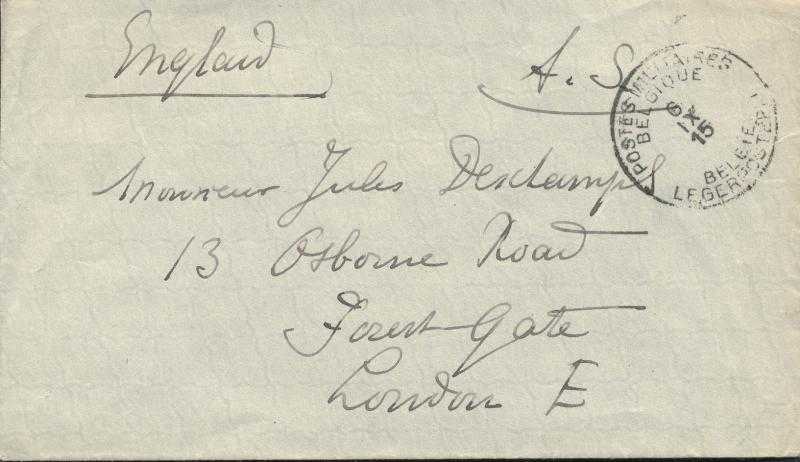 England
A. S.
POSTES MILITAIRES
BELGIQUE
6
IX
15
BELGIE
LEGERPOSTERIJ
Monsieur Jules Deschamps
13 Osborne Road
Forest Gate
London E